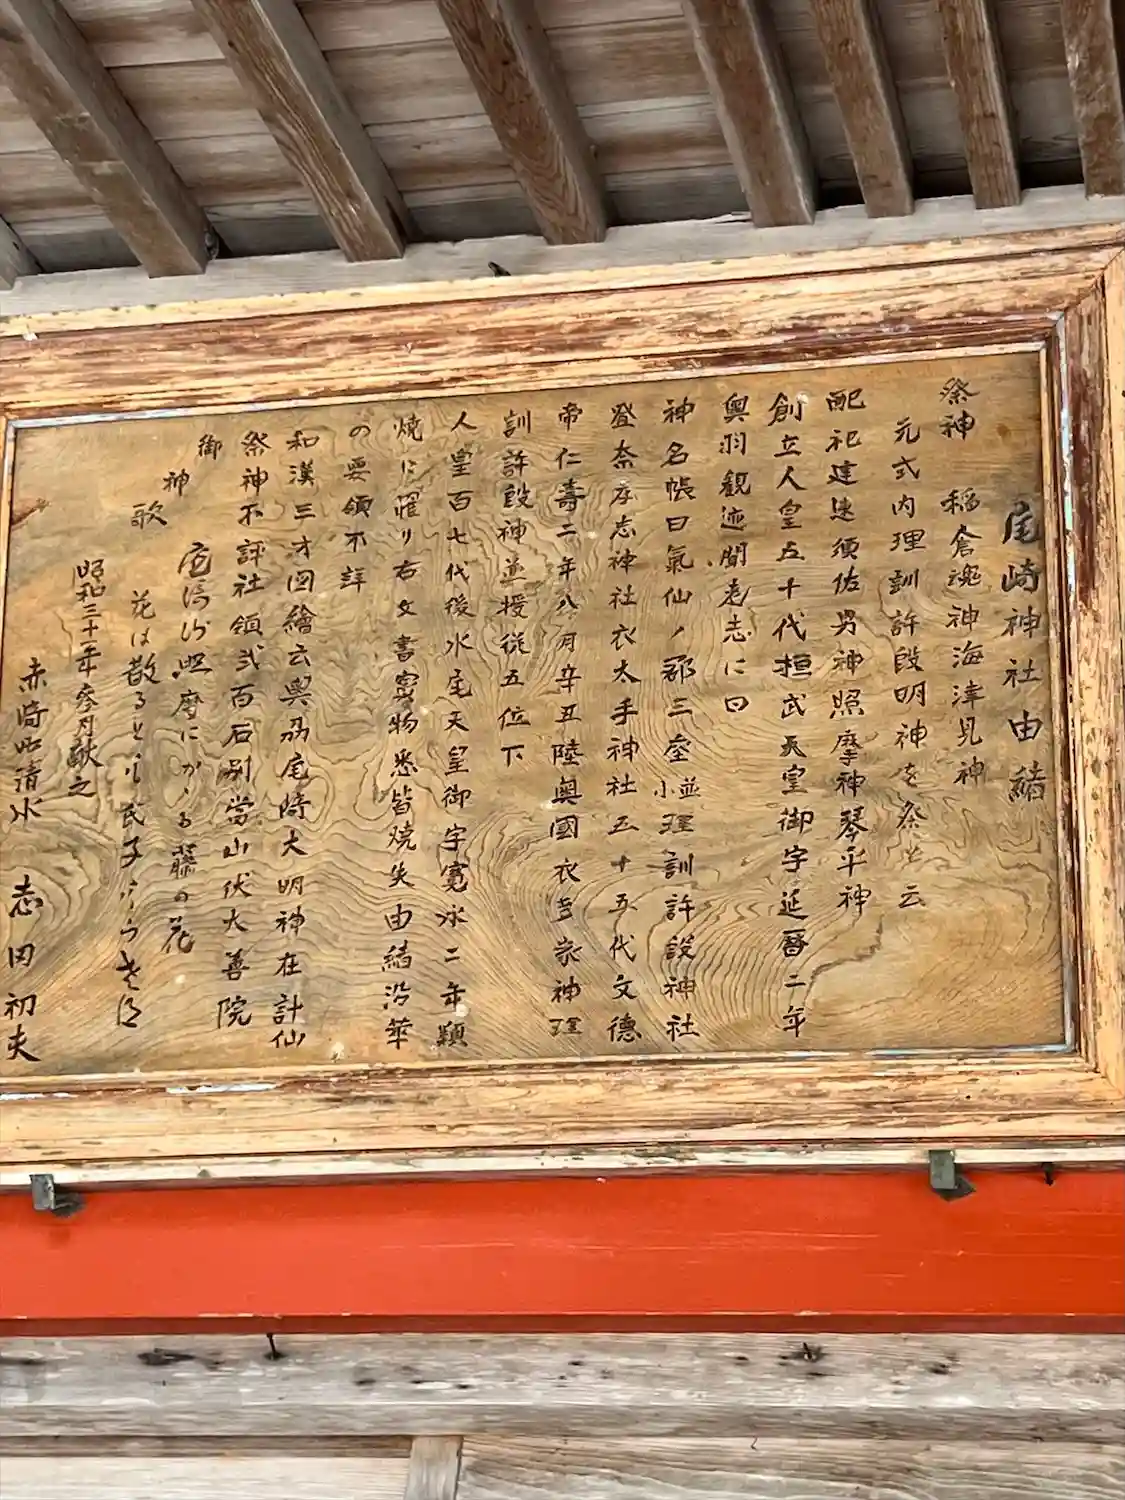 尾崎神社由緒
祭神 稲倉魂神海津見神
元式内理訓許段明神を祭と云
配祀建速須佐男神照摩神琴平神
創立人皇五十代桓武天皇御宇延暦二年
奥羽観迹聞老志に曰
神名帳曰氣仙ノ郡三座並小理訓許段神社
登奈孝志神社衣太手神社五十五代文德
帝仁壽二年八月辛丑陸奥國衣多手神理
訓許段神並授從五位下
人皇百七代後水尾天皇御宇寛永二年類
焼に罹リ右文書寳物悉皆焼失由緒沿革
の要領不詳
和漢三才図繪云奥州尾崎大明神在計仙
祭神不評社領弐百石別當山伏大善院
御神歌
照摩にかゝる藤の花
花は散るとも氏子
昭和三十二年参月献之
赤崎町清水 志田初夫